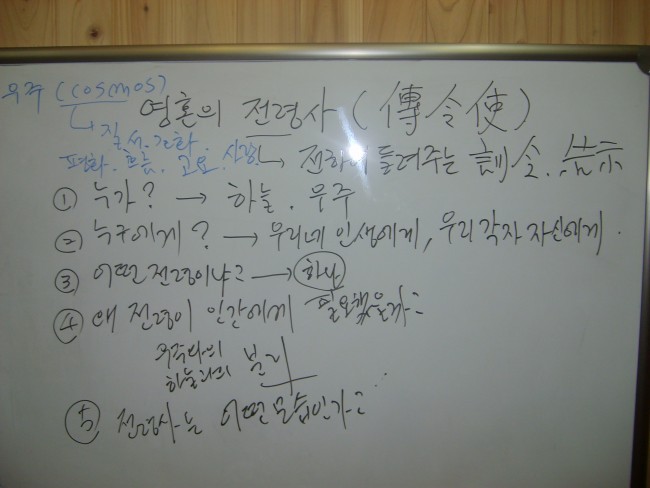 우주 (cosmos)
영혼의 전령사 (傳令使)
↳ 질서. 조화.
평화. 흐름. 고요.
↳ 전하여 들려주는 訓令. 告示
① 누가? → 하늘. 우주
② 누구에게? → 우리네 인생에게, 우리 각자 자신에게.
③ 어떤 전령이냐? → 하나
④ 왜 전령이 인간에게 필요했을까?
우주와의
하늘과의 분리
⑤ 전령사는 어떤 모습인가?